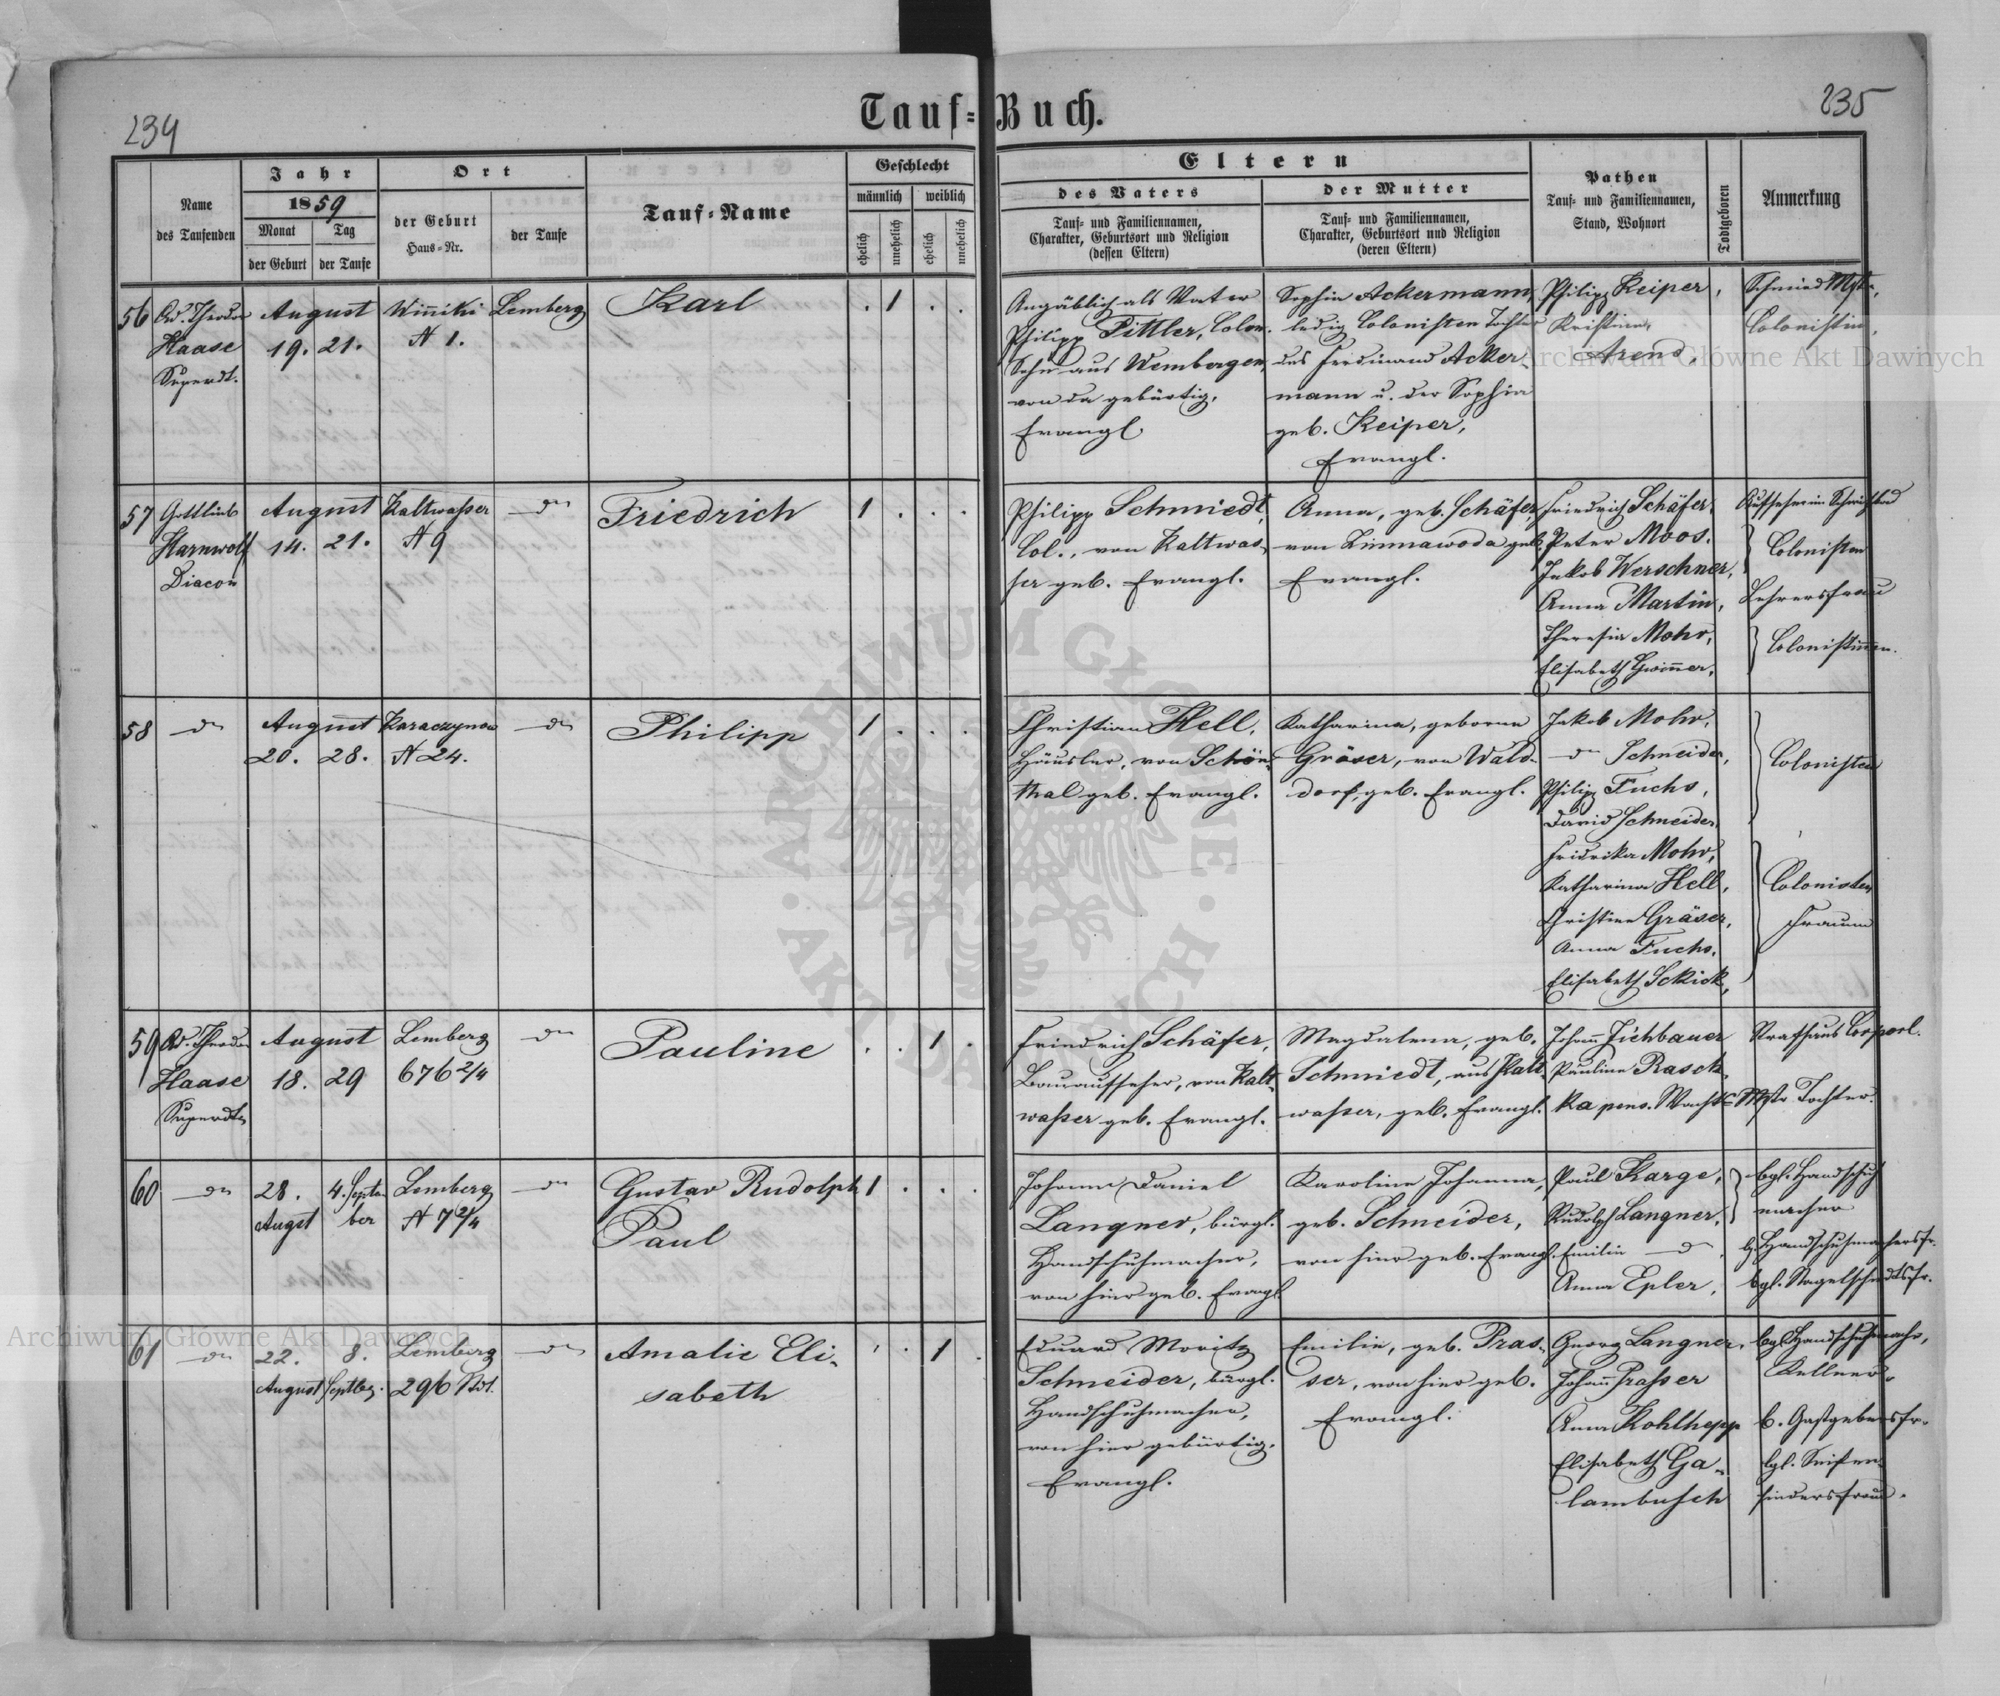 234
Tauf-Buch.
235
Name des Taufenden
Jahr
1859
Monat der Geburt
Tag der Taufe
Ort
der Geburt Haus-Nr.
der Taufe
Tauf-Name
Geschlecht
männlich
weiblich
ehelich
unehelich
ehelich
unehelich
Eltern
des Vaters
Tauf- und Familiennamen,
Charakter, Geburtsort und Religion
(dessen Eltern)
der Mutter
Tauf- und Familiennamen,
Charakter, Geburtsort und Religion
(deren Eltern)
Pathen
Tauf- und Familiennamen,
Stand, Wohnort
Todtgeboren
Anmerkung
56
Ad. Theodor
Haase
Superdt.
August
19. 21.
Winniki
N 1.
Lemberg
Karl
. 1 . .
Angäblich als Vater
Philipp Pittler, Colon.
Sohn aus Wembergen,
von da gebürtig,
Evangl.
Sophia Ackermann,
ledig Colonisten Tochter
des Ferdinand Acker-
mann u. der Sophia
geb. Keiper,
Evangl.
Philipp Keiper,
Kristina
Arend,
Schmied Mst.,
Colonistin.
57
Gottlieb
Harnwolf
Diacon
August
14. 21.
Kaltwasser
N 9
do
Friedrich
1 . . .
Philipp Schmiedt,
Col., von Kaltwas-
ser geb. Evangl.
Anna, geb. Schäfer,
von Zimnawoda geb.
Evangl.
Friedrich Schäfer,
Peter Moos.
Jakob Werschner,
Anna Martin,
Theresia Mohr,
Elisabeth Gwinner,
Colonisten
Lehrersfrau
Colonistinnen.
58
do
August
20. 28.
Karaczynow
N 24.
do
Philipp
1 . . .
Christian Hell,
Häusler, von Schön-
thal geb. Evangl.
Katharina, geborne
Gräser, von Wald-
dorf, geb. Evangl.
Jakob Mohr,
do Schneider,
Philipp Fuchs,
David Schneider,
Fridrika Mohr,
Katharina Hell,
Christine Gräser,
Anna Fuchs,
Elisabeth Schick,
Colonisten
Colonisten
Frauen
59
Ad. Theodor
Haase
Superdt.
August
18. 29
Lemberg
676 2/4
do
Pauline
. . 1 .
Friedrich Schäfer,
Bauaufseher, von Kalt-
wasser geb. Evangl.
Magdalena, geb.
Schmiedt, aus Kalt-
wasser, geb. Evangl.
Johann Fichbauer
Pauline Rasch-
ka pens. Wacht-Mstr. Tochter.
Strafhaus Corporl.
60
do
28.
August
4. Septem
ber
Lemberg
N 7 2/4
do
Gustav Rudolph
Paul
1 . . .
Johann Daniel
Langner, bürgl.
Handschuhmacher,
von hier geb. Evangl.
Karoline Johanna,
geb. Schneider,
von hier geb. Evangl.
Paul Karge,
Rudolph Langner,
Emilie do,
Anna Epler,
bgl. Handschuh
macher
b. Handschuhmachersfr.
bgl. Nagelschmdtsfr.
61
do
22.
August
8.
Septbr.
Lemberg
296 Std.
do
Amalie Eli-
sabeth
. . 1 .
Eduard Moritz
Schneider, bürgl.
Handschuhmacher,
von hier gebürtig.
Evangl.
Emilie, geb. Pras-
ser, von hier geb.
Evangl.
Georg Langner,
Johann Prasser
Anna Kohlhepp
Elisabeth Ga-
lambusch
bgl. Handschuhmachr,
Kellner.
b. Gastgebersfr.
bgl. Seifen-
siedersfrau.
Archiwum Główne Akt Dawnych
Archiwum Główne Akt Dawnych
ARCHIWUM GŁÓWNE · AKT DAWNYCH ·